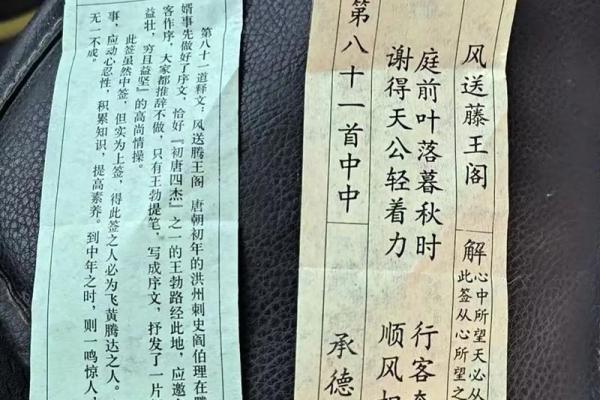 风送藤王阁
解
心中所望天必丛
此签从心所望之
庭前叶落暮秋时 行客
谢得天公轻着力 顺风
第八十一首中中 承德
第八十一道释文：风送腾王阁 唐朝初年的洪州刺史阎伯理在
婿事先做好了序文，恰好『初唐四杰』之一的王勃路经此地，应邀
客作序，大家都推辞不做，只有王勃提笔，写成序文，抒发了一片
益壮，穷且益坚』的高尚情操。
此签虽然中签，但实为上签，得此签之人必为飞黄腾达之人。
事，应动心忍性，积累知识，提高素养。到中年之时，则一鸣惊人，
无一不成。